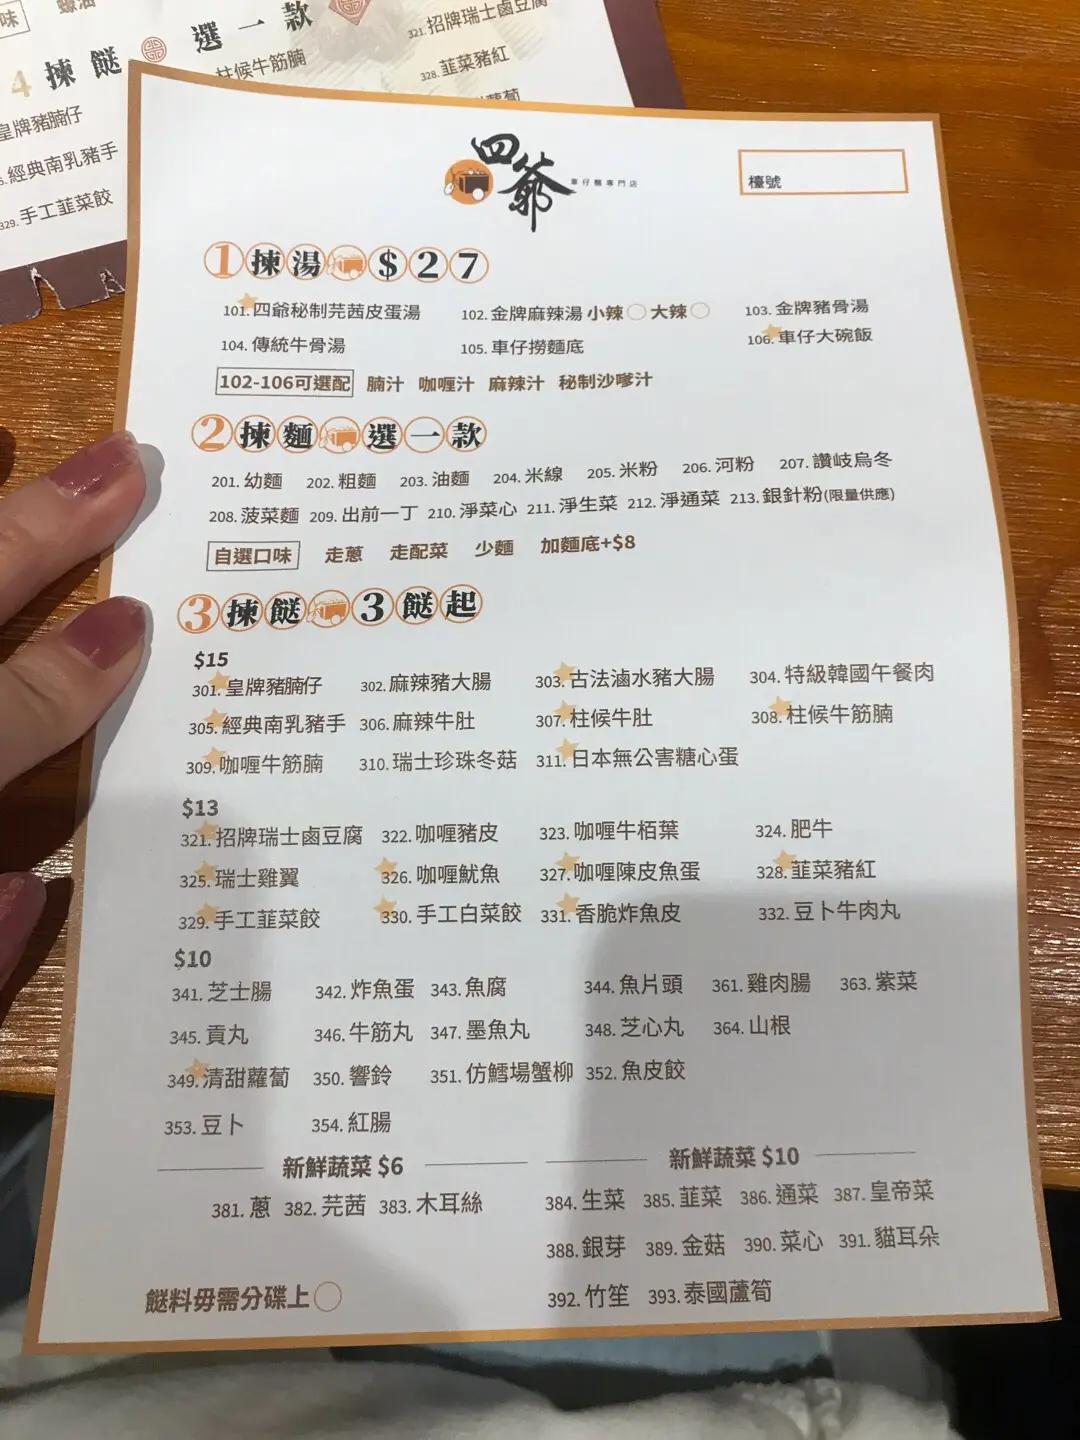 4 揀餸 選一款
321. 招牌瑞士鹵豆腐
柱候牛筋腩
328. 韮菜豬紅
皇牌豬腩仔
經典南乳豬手
329. 手工韮菜餃
四爺
車仔麵專門店
檯號
1 揀湯 $27
101. 四爺秘制芫茜皮蛋湯 102. 金牌麻辣湯 小辣 大辣 103. 金牌豬骨湯
104. 傳統牛骨湯 105. 車仔撈麵底 106. 車仔大碗飯
102-106可選配 腩汁 咖喱汁 麻辣汁 秘制沙嗲汁
2 揀麵 選一款
201. 幼麵 202. 粗麵 203. 油麵 204. 米線 205. 米粉 206. 河粉 207. 讚岐烏冬
208. 菠菜麵 209. 出前一丁 210. 淨菜心 211. 淨生菜 212. 淨通菜 213. 銀針粉(限量供應)
自選口味 走蔥 走配菜 少麵 加麵底+$8
3 揀餸 3 餸起
$15
301. 皇牌豬腩仔 302. 麻辣豬大腸 303. 古法滷水豬大腸 304. 特級韓國午餐肉
305. 經典南乳豬手 306. 麻辣牛肚 307. 柱候牛肚 308. 柱候牛筋腩
309. 咖喱牛筋腩 310. 瑞士珍珠冬菇 311. 日本無公害糖心蛋
$13
321. 招牌瑞士鹵豆腐 322. 咖喱豬皮 323. 咖喱牛栢葉 324. 肥牛
325. 瑞士雞翼 326. 咖喱魷魚 327. 咖喱陳皮魚蛋 328. 韮菜豬紅
329. 手工韮菜餃 330. 手工白菜餃 331. 香脆炸魚皮 332. 豆卜牛肉丸
$10
341. 芝士腸 342. 炸魚蛋 343. 魚腐 344. 魚片頭 361. 雞肉腸 363. 紫菜
345. 貢丸 346. 牛筋丸 347. 墨魚丸 348. 芝心丸 364. 山根
349. 清甜蘿蔔 350. 響鈴 351. 仿鱈場蟹柳 352. 魚皮餃
353. 豆卜 354. 紅腸
新鮮蔬菜 $6
381. 蔥 382. 芫茜 383. 木耳絲
新鮮蔬菜 $10
384. 生菜 385. 韮菜 386. 通菜 387. 皇帝菜
388. 銀芽 389. 金菇 390. 菜心 391. 貓耳朵
392. 竹笙 393. 泰國蘆筍
餸料毋需分碟上